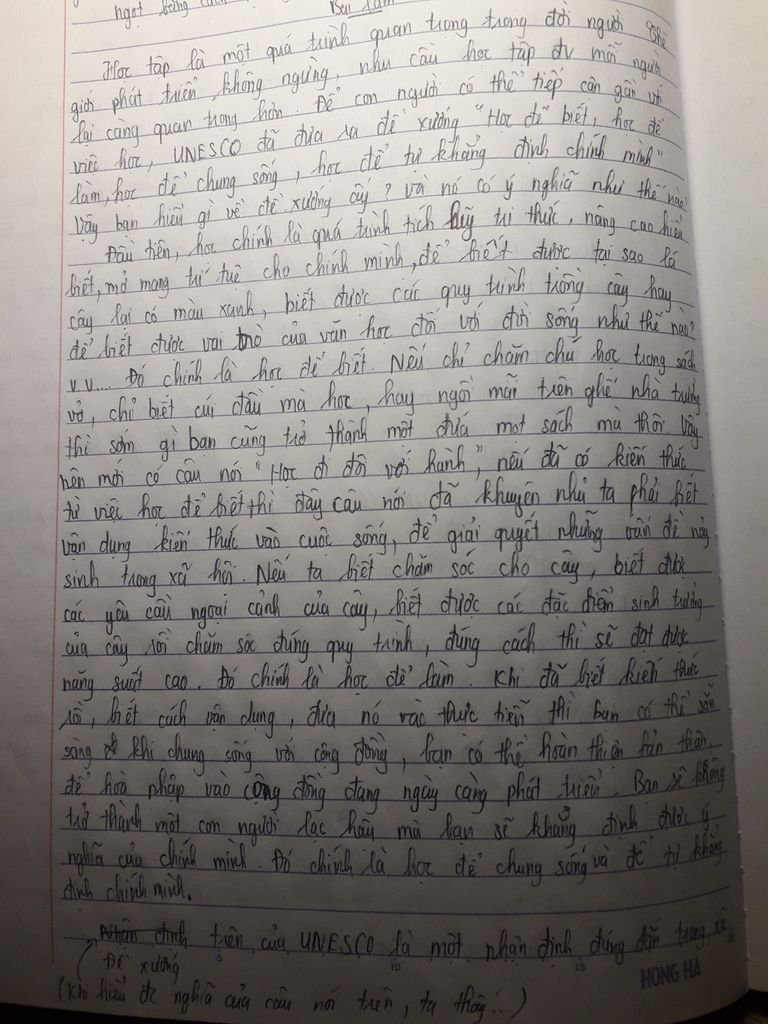 ngọt bằng
Bài làm
Học tập là một quá trình quan trọng trong đời người. Thế
giới phát triển không ngừng, nhu cầu học tập đv mỗi người
lại càng quan trọng hơn. Để con người có thể tiếp cận gần với
việc học, UNESCO đã đưa ra đề xướng "Học để biết, học để
làm, học để chung sống, học để tự khẳng định chính mình"
Vậy bạn hiểu gì về đề xướng ấy? và nó có ý nghĩa như thế nào?
Đầu tiên, học chính là quá trình tích luỹ tri thức, nâng cao hiểu
biết, mở mang trí tuệ cho chính mình, để biết được tại sao lá
cây lại có màu xanh, biết được các quy trình trồng cây hay
để biết được vai trò của văn học đối với đời sống như thế nào?
v.v.... Đó chính là học để biết. Nếu chỉ chăm chú học trong sách
vở, chỉ biết cúi đầu mà học, hay ngồi mãi trên ghế nhà trường
thì sớm gì bạn cũng trở thành một đứa mọt sách mà thôi. Vậy
nên mới có câu nói "Học đi đôi với hành", nếu đã có kiến thức
từ việc học để biết thì đây câu nói đã khuyên nhủ ta phải biết
vận dụng kiến thức vào cuộc sống, để giải quyết những vấn đề nảy
sinh trong xã hội. Nếu ta biết chăm sóc cho cây, biết được
các yêu cầu ngoại cảnh của cây, biết được các đặc điểm sinh trưởng
của cây rồi chăm sóc đúng quy trình, đúng cách thì sẽ đạt được
năng suất cao. Đó chính là học để làm. Khi đã biết kiến thức
rồi, biết cách vận dụng, đưa nó vào thực tiễn thì bạn có thể sẵn
sàng khi chung sống với cộng đồng, bạn có thể hoàn thiện bản thân,
để hoà nhập vào cộng đồng đang ngày càng phát triển. Bạn sẽ không
trở thành một con người lạc hậu mà bạn sẽ khẳng định được ý
nghĩa của chính mình. Đó chính là học để chung sống và để tự khẳng
định chính mình.
Nhận định trên của UNESCO là một nhận định đúng đắn trong xã
Đề xướng
(Khi hiểu đc nghĩa của câu nói trên, ta thấy...)
5 10 15 20
HONG HA